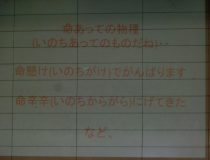 命あっての物種
(いのちあってのものだね)‥
命懸け(いのちがけ)でがんばります
命辛辛(いのちからがら)にげてきた
など、